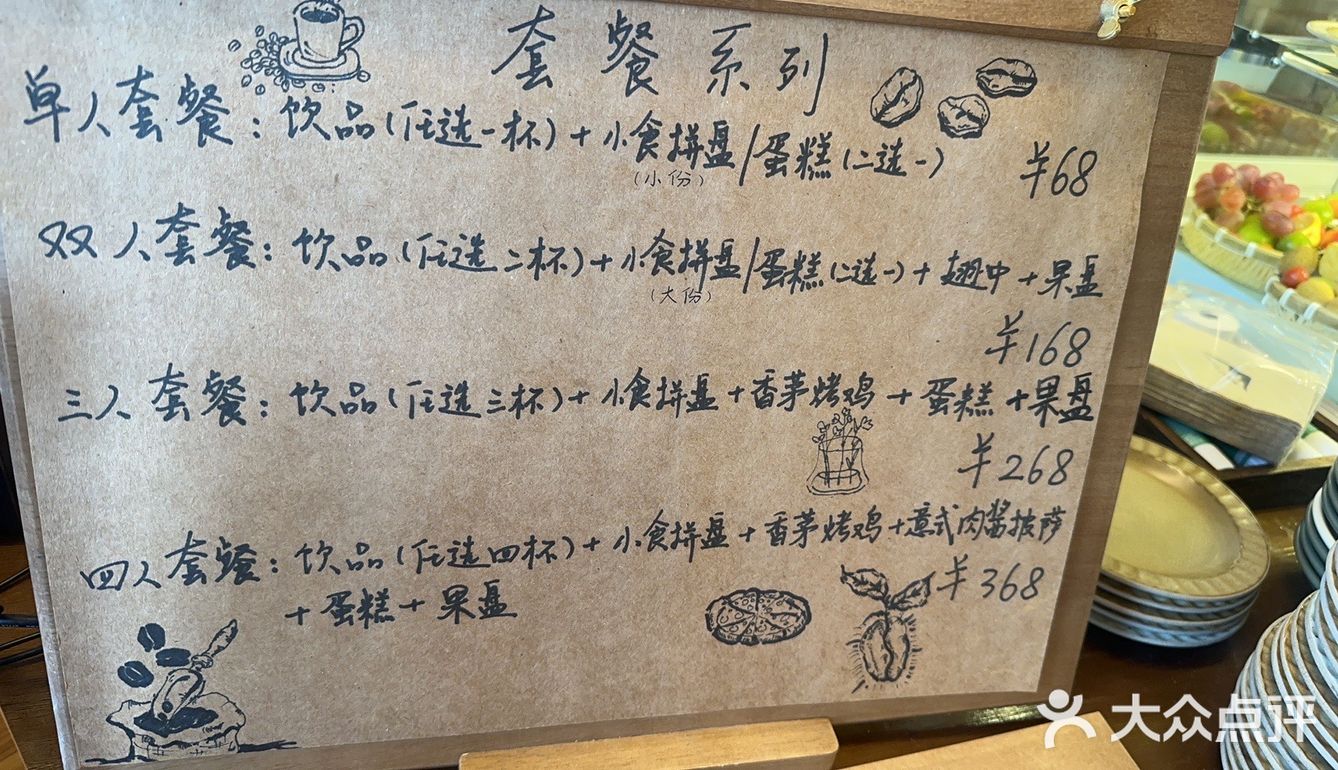 套餐系列
单人套餐：饮品(任选一杯)+小食拼盘/蛋糕(二选一)
(小份)
￥68
双人套餐：饮品(任选二杯)+小食拼盘/蛋糕(二选一)+翅中+果盘
(大份)
￥168
三人套餐：饮品(任选三杯)+小食拼盘+香茅烤鸡+蛋糕+果盘
￥268
四人套餐：饮品(任选四杯)+小食拼盘+香茅烤鸡+意式肉酱披萨
+蛋糕+果盘
￥368
大众点评